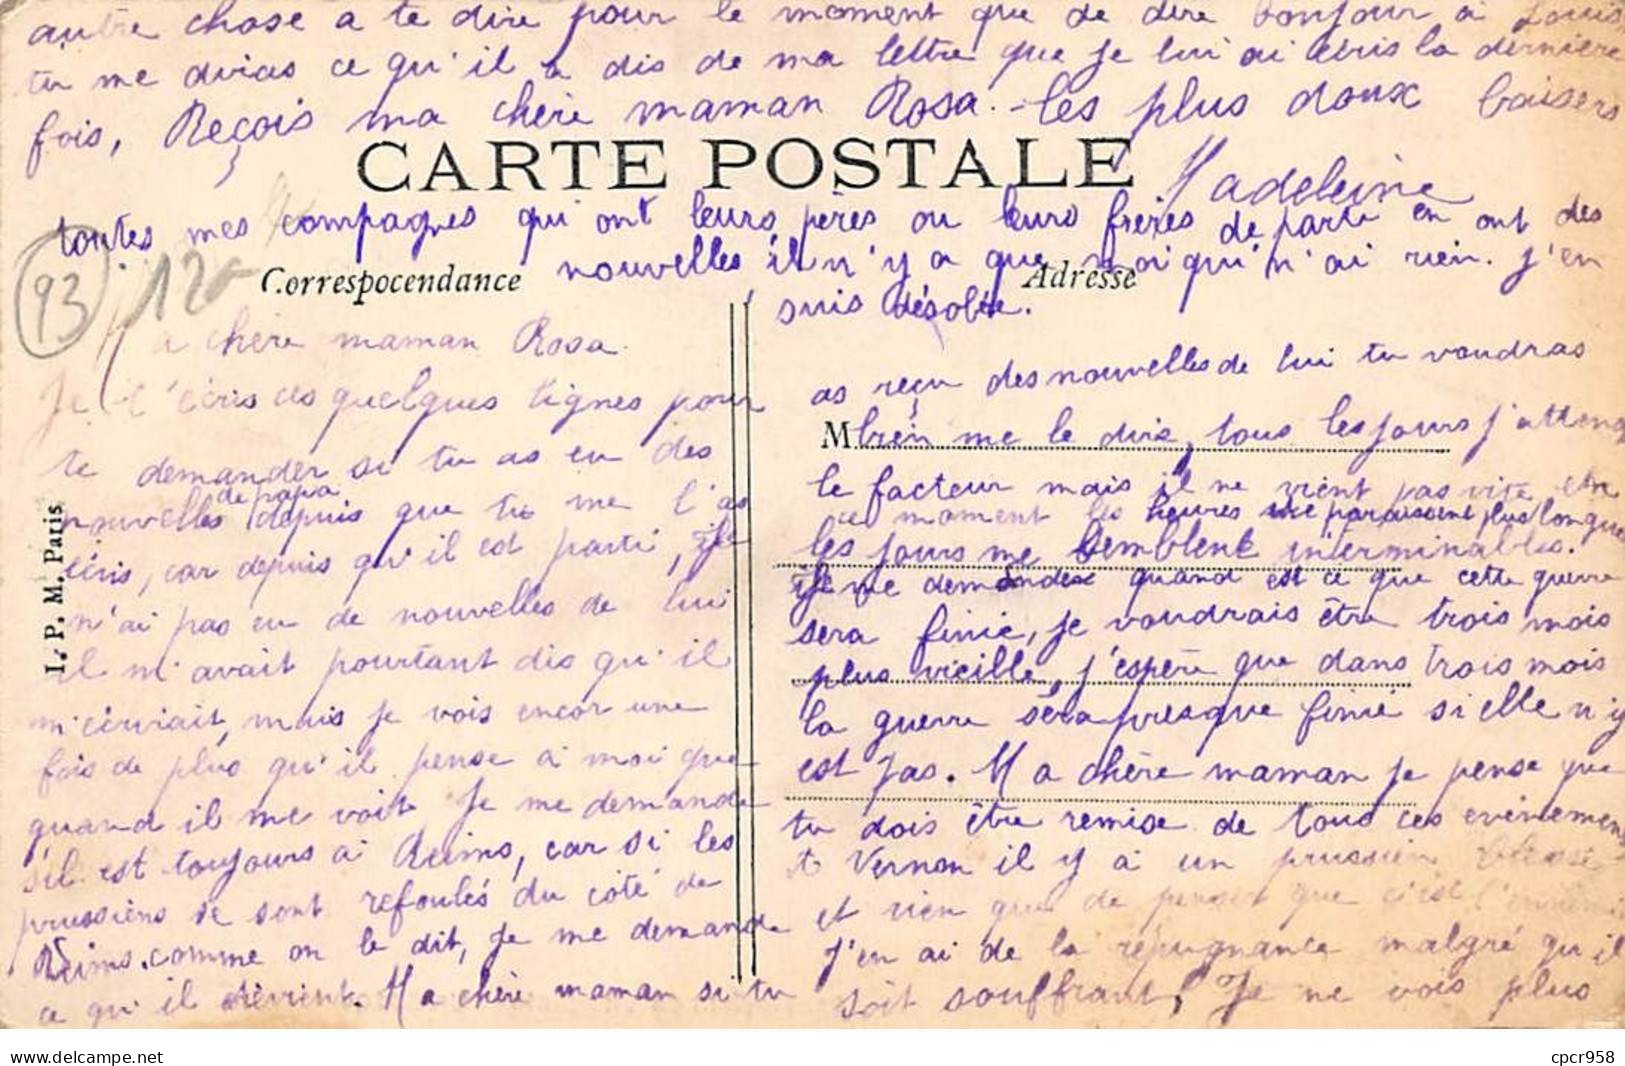 autre chose a te dire pour le moment que de dire bonjour a Louis
tu me dirias ce qu'il a dis de ma lettre que je lui ai écris la dernière
fois, Reçois ma chère maman Rosa. les plus doux baisers
CARTE POSTALE
Madeleine
toutes mes compagnes qui ont leurs pères ou leurs frères de partu en ont des
nouvelles il n'y a que moi qui n'ai rien. J'en
suis désolée.
93
12
Correspocendance
Adresse
Ma chère maman Rosa.
Je t'écris ces quelques lignes pour
te demander si tu as eu des
nouvelles de papa depuis que tu me l'as
écris, car depuis qu'il est parti, je
n'ai pas eu de nouvelles de lui
il m'avait pourtant dis qu'il
m'écrirait, mais je vois encor une
fois de plus qu'il pense a moi que
quand il me voit Je me demande
s'il est toujours a Reims, car si les
prussiens se sont refoulés du côté de
Reims. comme on le dit, je me demande
ce qu'il devient. Ma chère maman si tu
as reçu des nouvelles de lui tu voudras
M
bien me le dire, tous les jours j'attend
le facteur mais il ne vient pas vite en
ce moment les heures me paraissent plus longue
les jours me semblent interminables.
Je me demande quand est ce que cette guerre
sera finie, je voudrais être trois mois
plus vieille, j'espère que dans trois mois
la guerre sera presque finie si elle n'y
est pas. Ma chère maman je pense que
tu dois être remise de tous ces evènements
A Vernon il y a un prussien blessé
et rien que de penser que c'est l'ennemi
j'en ai de la répugnance malgré qu'il
soit souffrant, Je ne vois plus
I. P. M. Paris
cpcr958